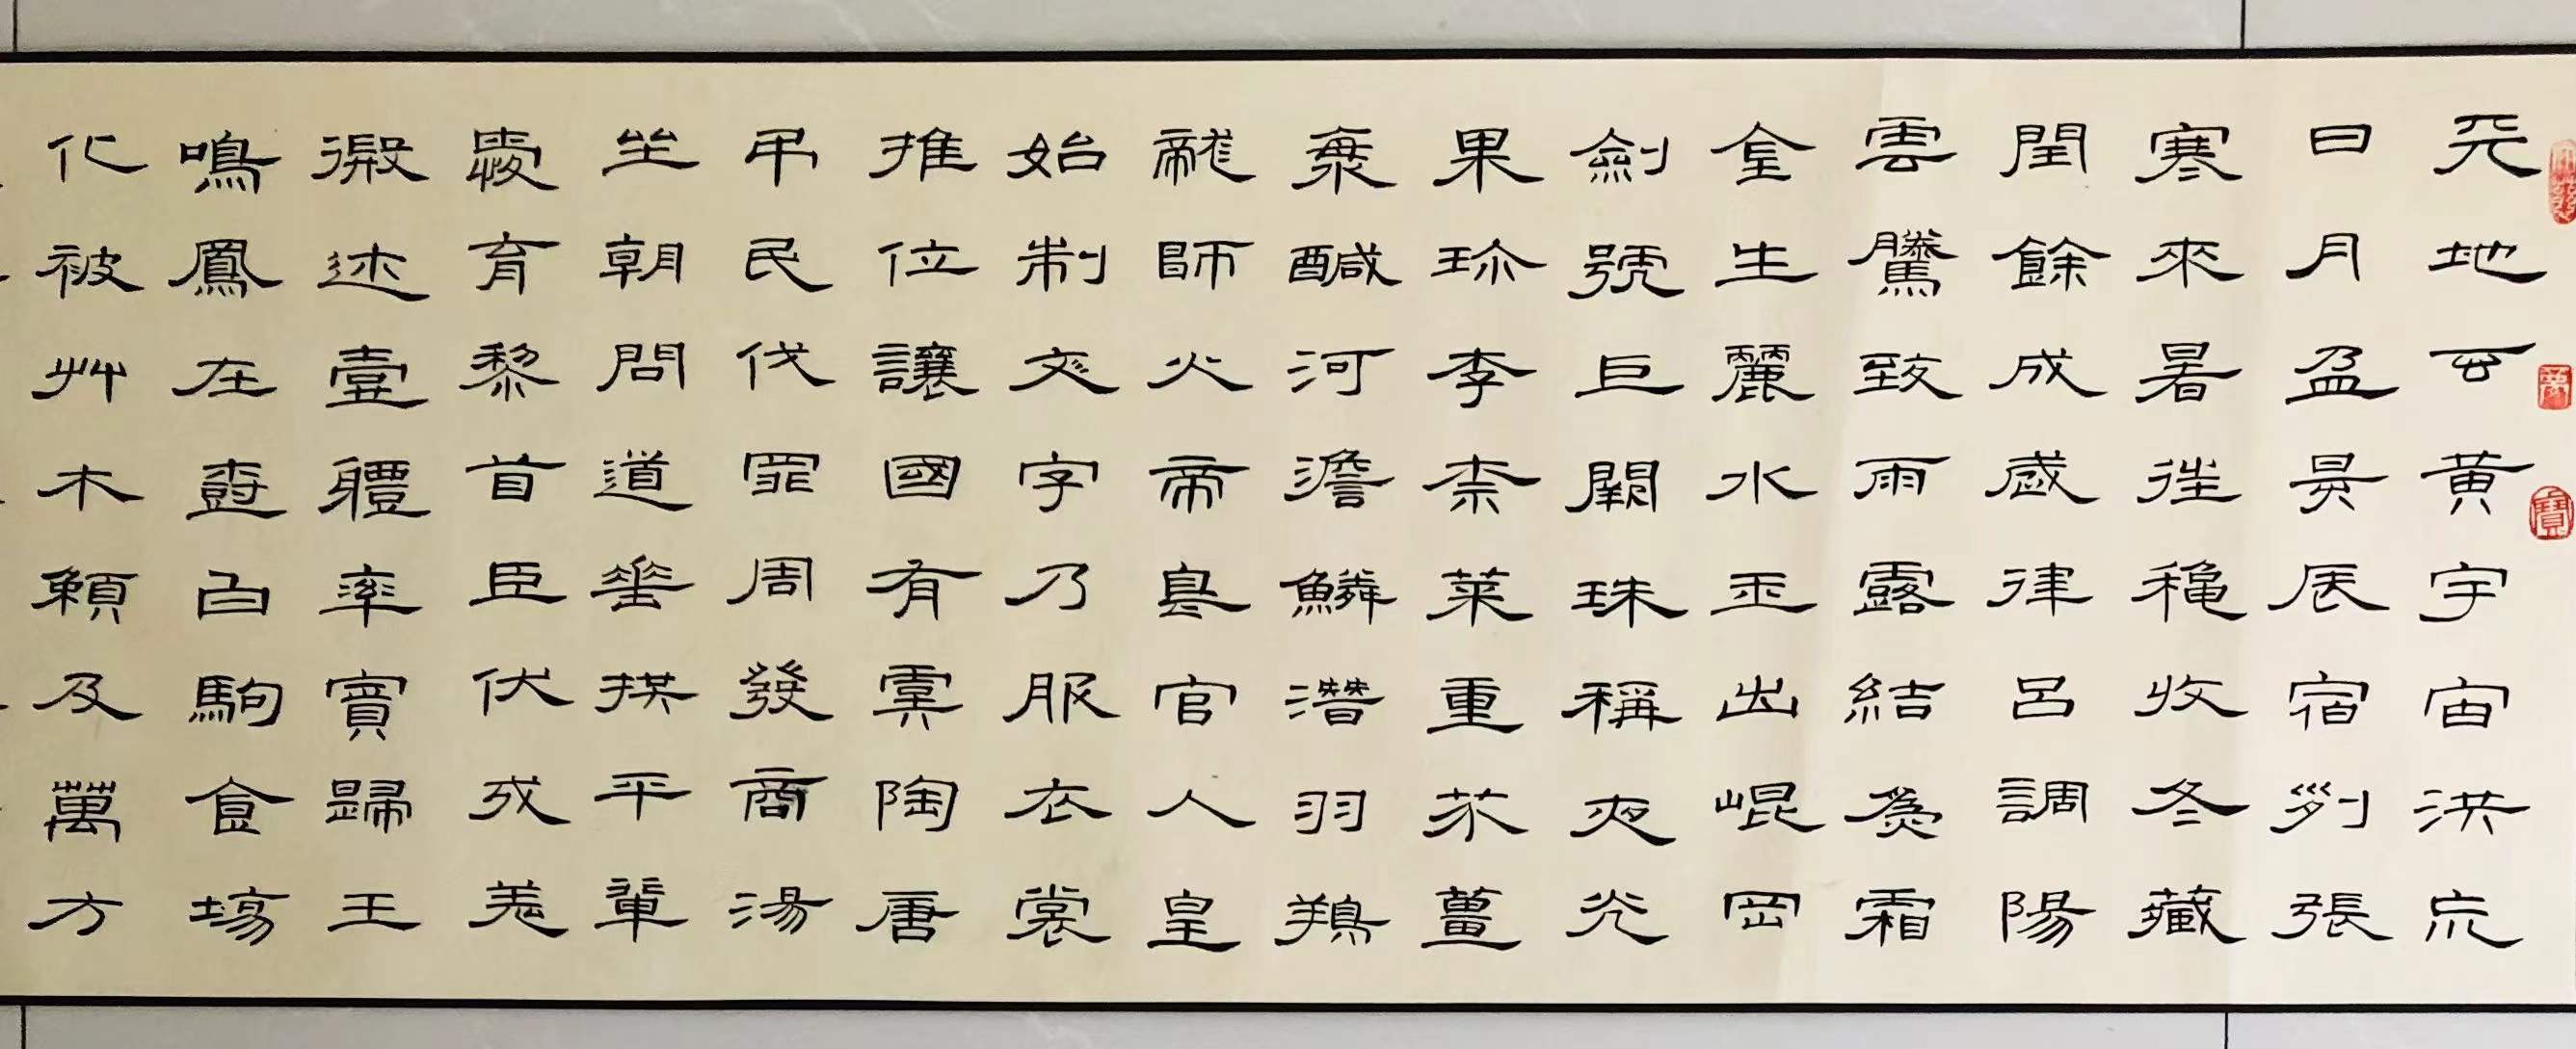 天地玄黃宇宙洪荒
日月盈昃辰宿列張
寒來暑往穐收冬藏
閏餘成歲律呂調陽
雲騰致雨露結爲霜
金生麗水玉出崐岡
劍號巨闕珠稱夜光
果珍李柰菜重芥薑
海鹹河澹鱗潛羽翔
龍師火帝鳥官人皇
始制文字乃服衣裳
推位讓國有虞陶唐
弔民伐罪周發商湯
坐朝問道垂拱平章
愛育黎首臣伏戎羌
遐邇壹體率賓歸王
鳴鳳在樹白駒食場
化被艸木賴及萬方